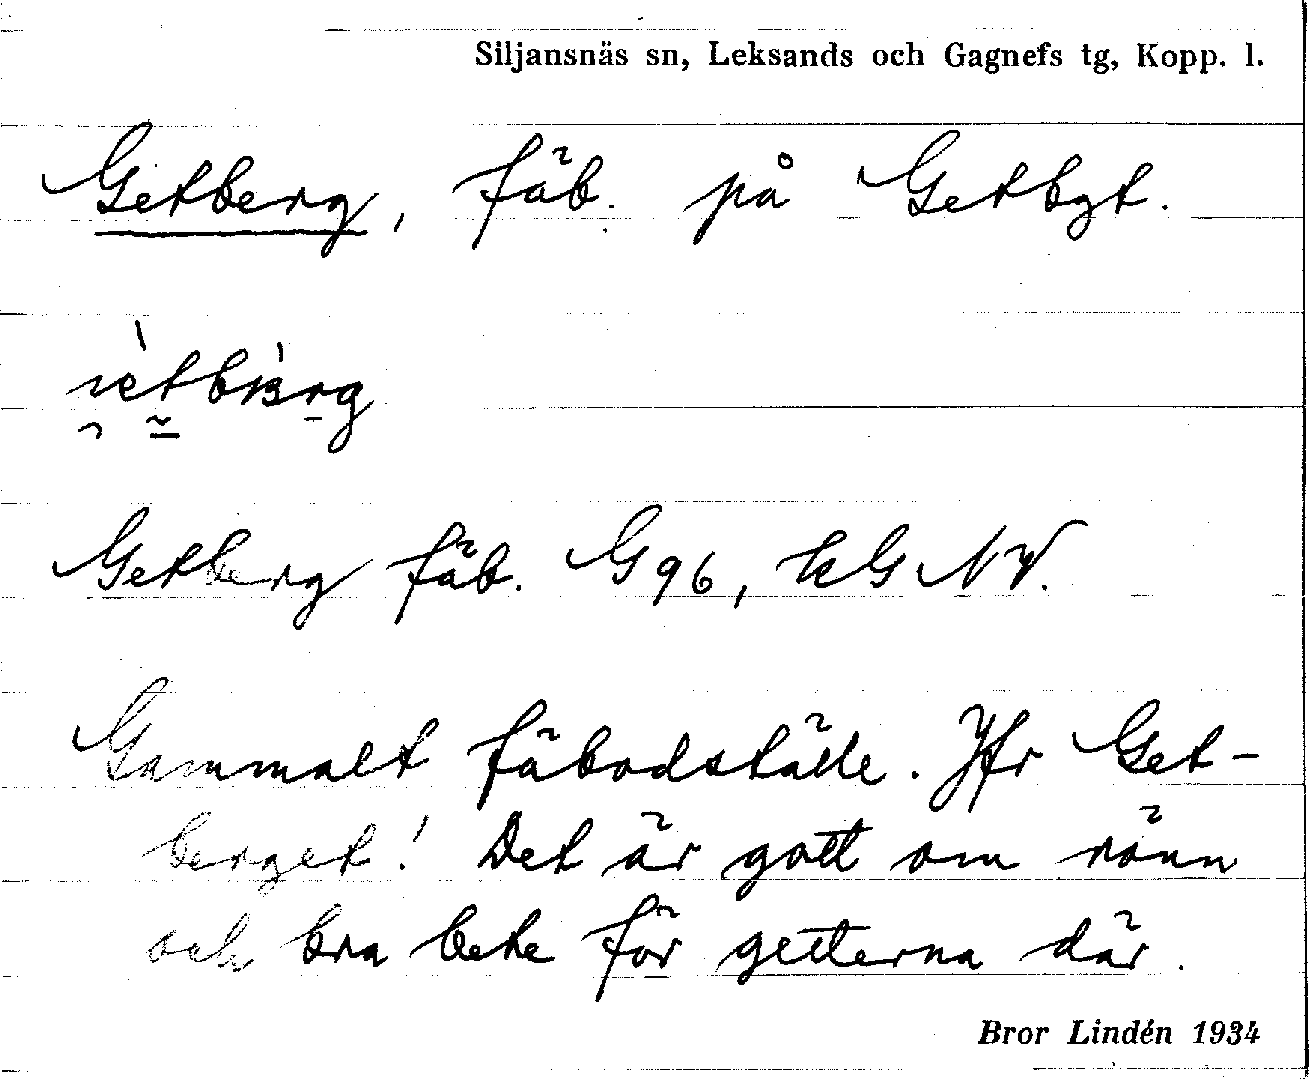 Siljansnäs sn, Leksands och Gagnefs tg, Kopp. l.
Getberg, fäb. på Getbgt.
Getberg fäb. G96, kG NV.
Gammalt fäbodställe. Jfr Get-
berget! Det är gott om rönn
och bra bete för getterna där.
Bror Lindén 1934